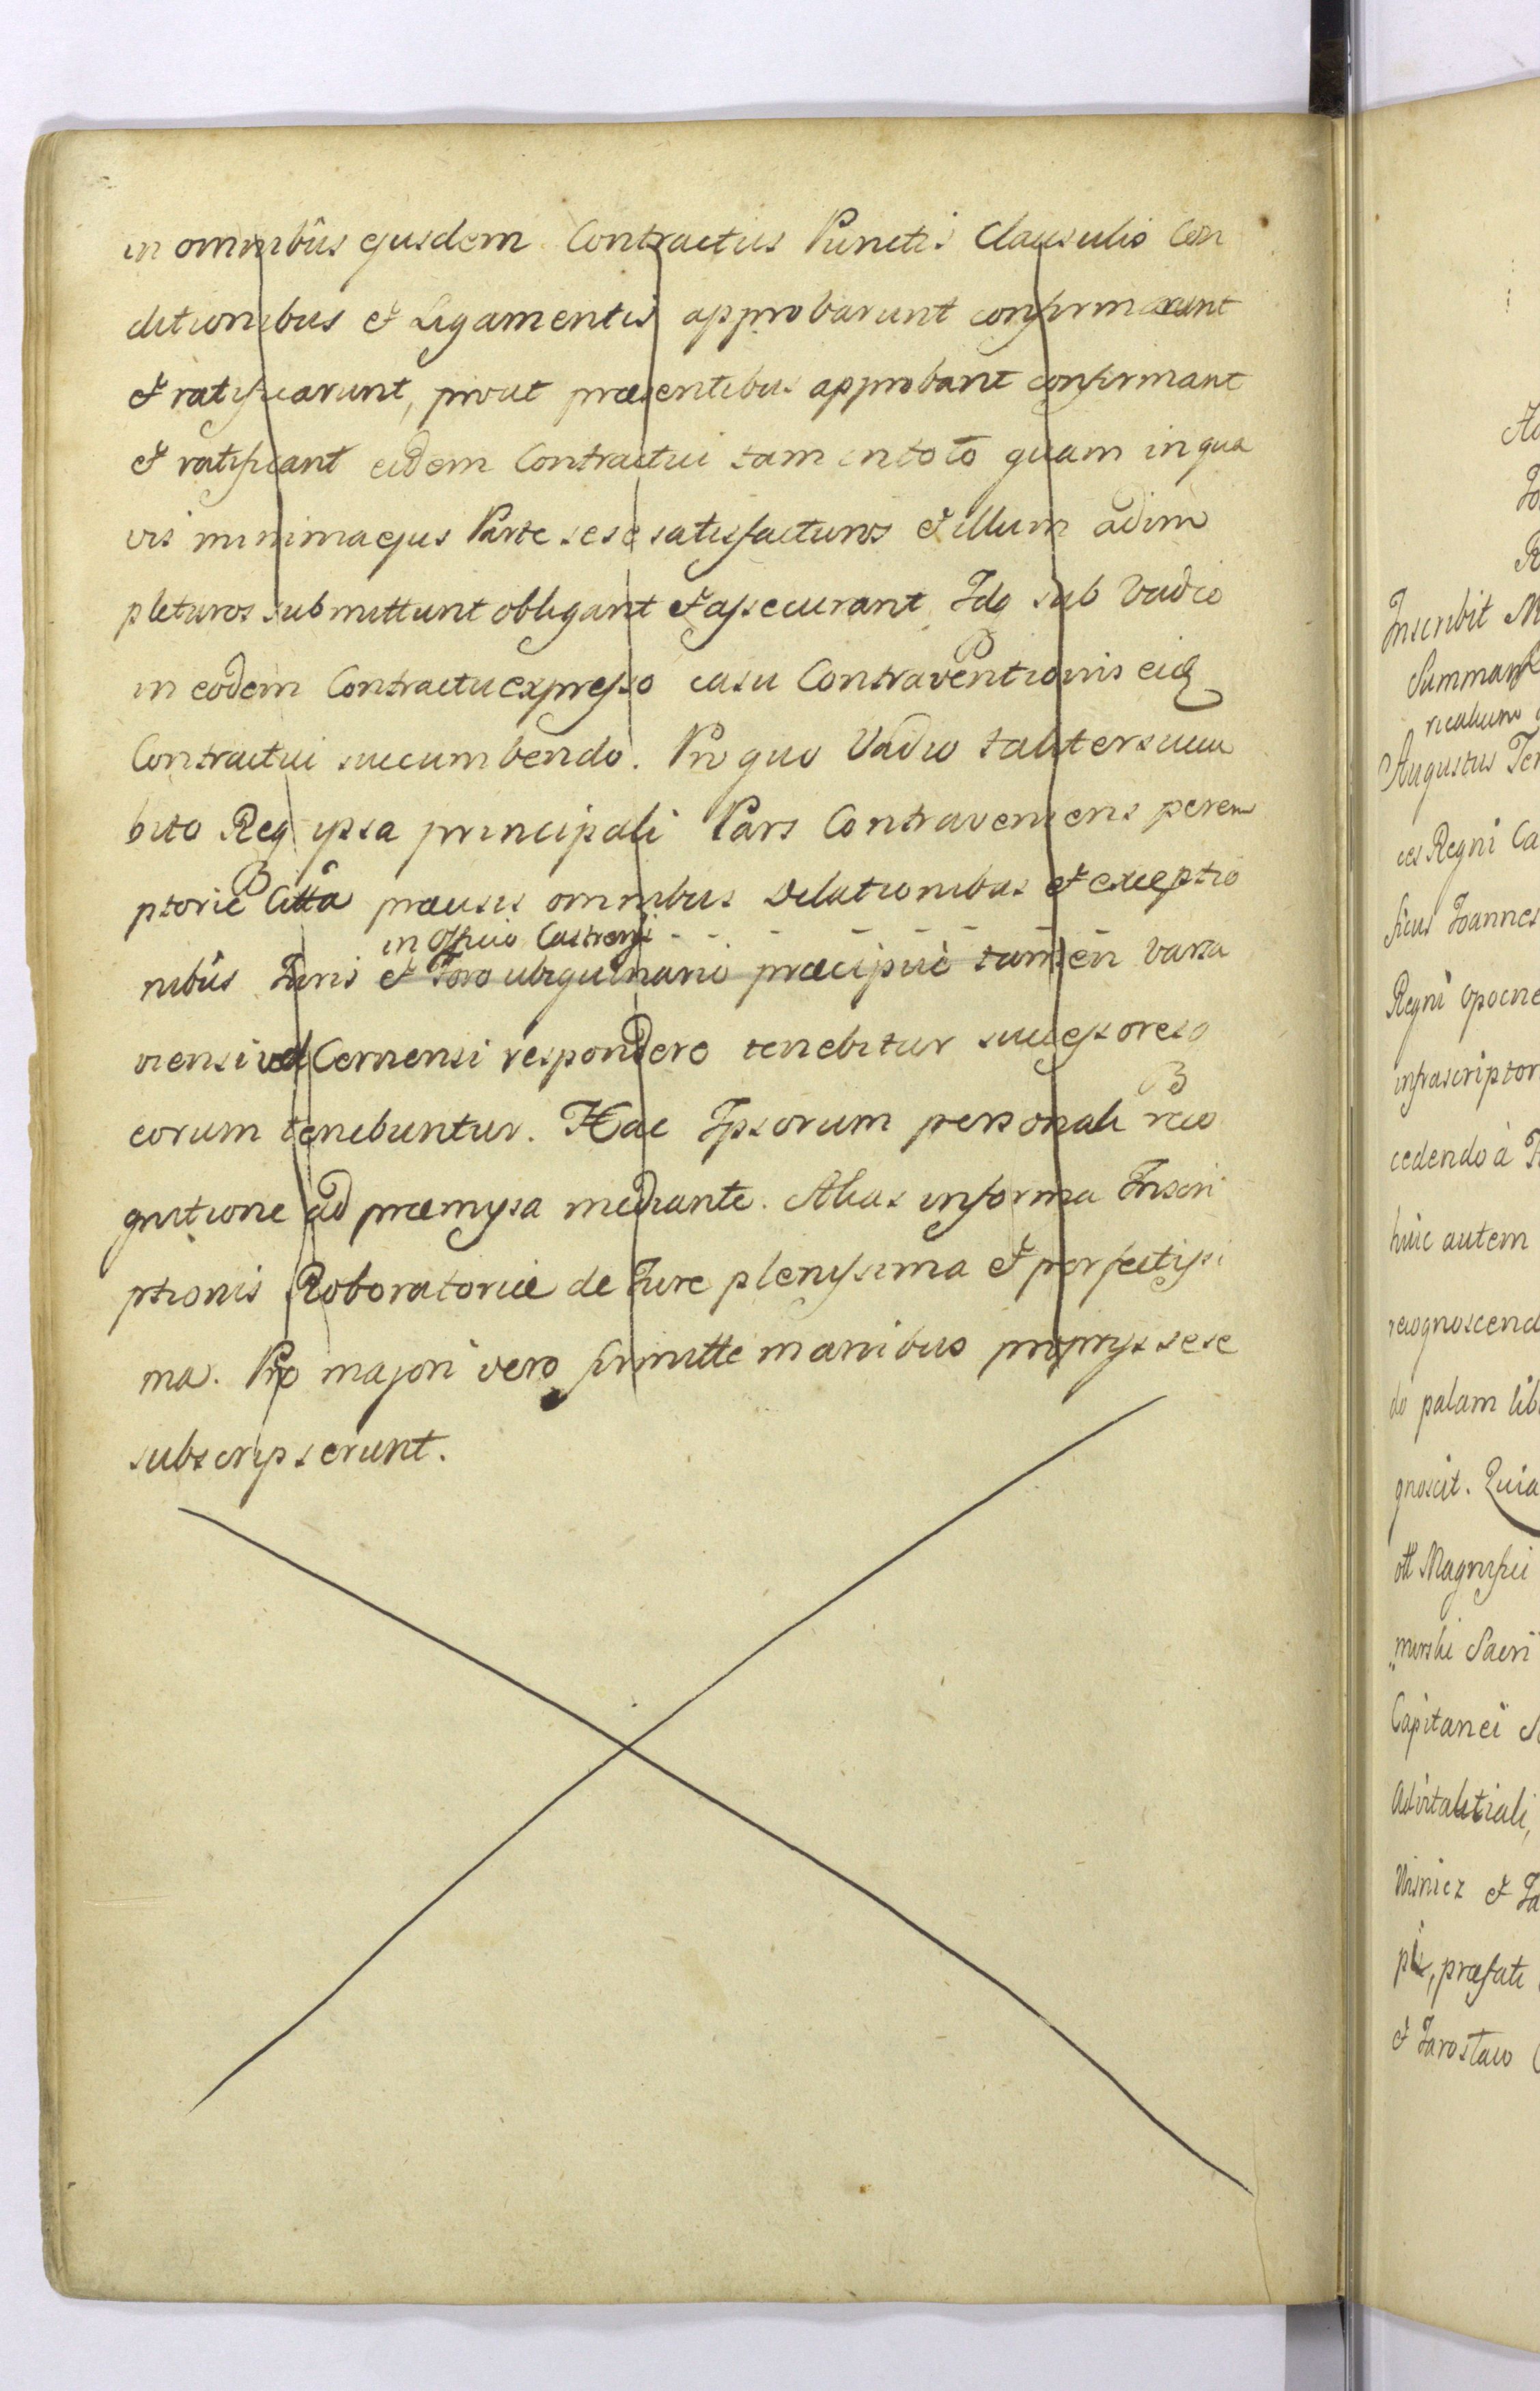 in omnibus ejusdem Contractus Punctis Clausulis Con
ditionibus et Ligamentis approbarunt confirmarunt
et ratificarunt, prout præsentibus approbant confirmant
et ratificant eidem Contractui tam in toto quam in qua
vis minima ejus Parte sese satisfacturos et illum adim
pleturos submittunt obligant et assecurant Idq sub Vadio
in eodem Contractu expresso casu Contraventionis eidq
Contractui succumbendo. Pro quo Vadio taliter succu
bito Req ipsa principali Pars Contraveniens perem
ptorie Citta præcisis omnibus Dilationibus et exceptio
in Officio Castrensi
nibus Juris et Foro ubiquinario præcipuè tamen Varsa
viensi vel Cernensi respondere tenebitur successoresq
eorum tenebuntur. Hac Ipsorum personali reco
gnitione ad præmyssa mediante. Alias in forma Inscri
ptionis Roboratoriæ de Jure plenissima et perfectissi
ma. Pro majori vero firmitte manibus proprys sese
subscripserunt.
Inscribit M
Summam
ricalium
Augustus Ter
ces Regni Ca
ficus Joannes
Regni Opocne
infrascriptor
cedendo à
huic autem
recognoscend
do palam lib
gnoscit. Quia
ott Magnifici
mirski Sacri
Capitanei
Advitalitiali,
Wisnicz et Ja
pii, præfati
et Jarosław